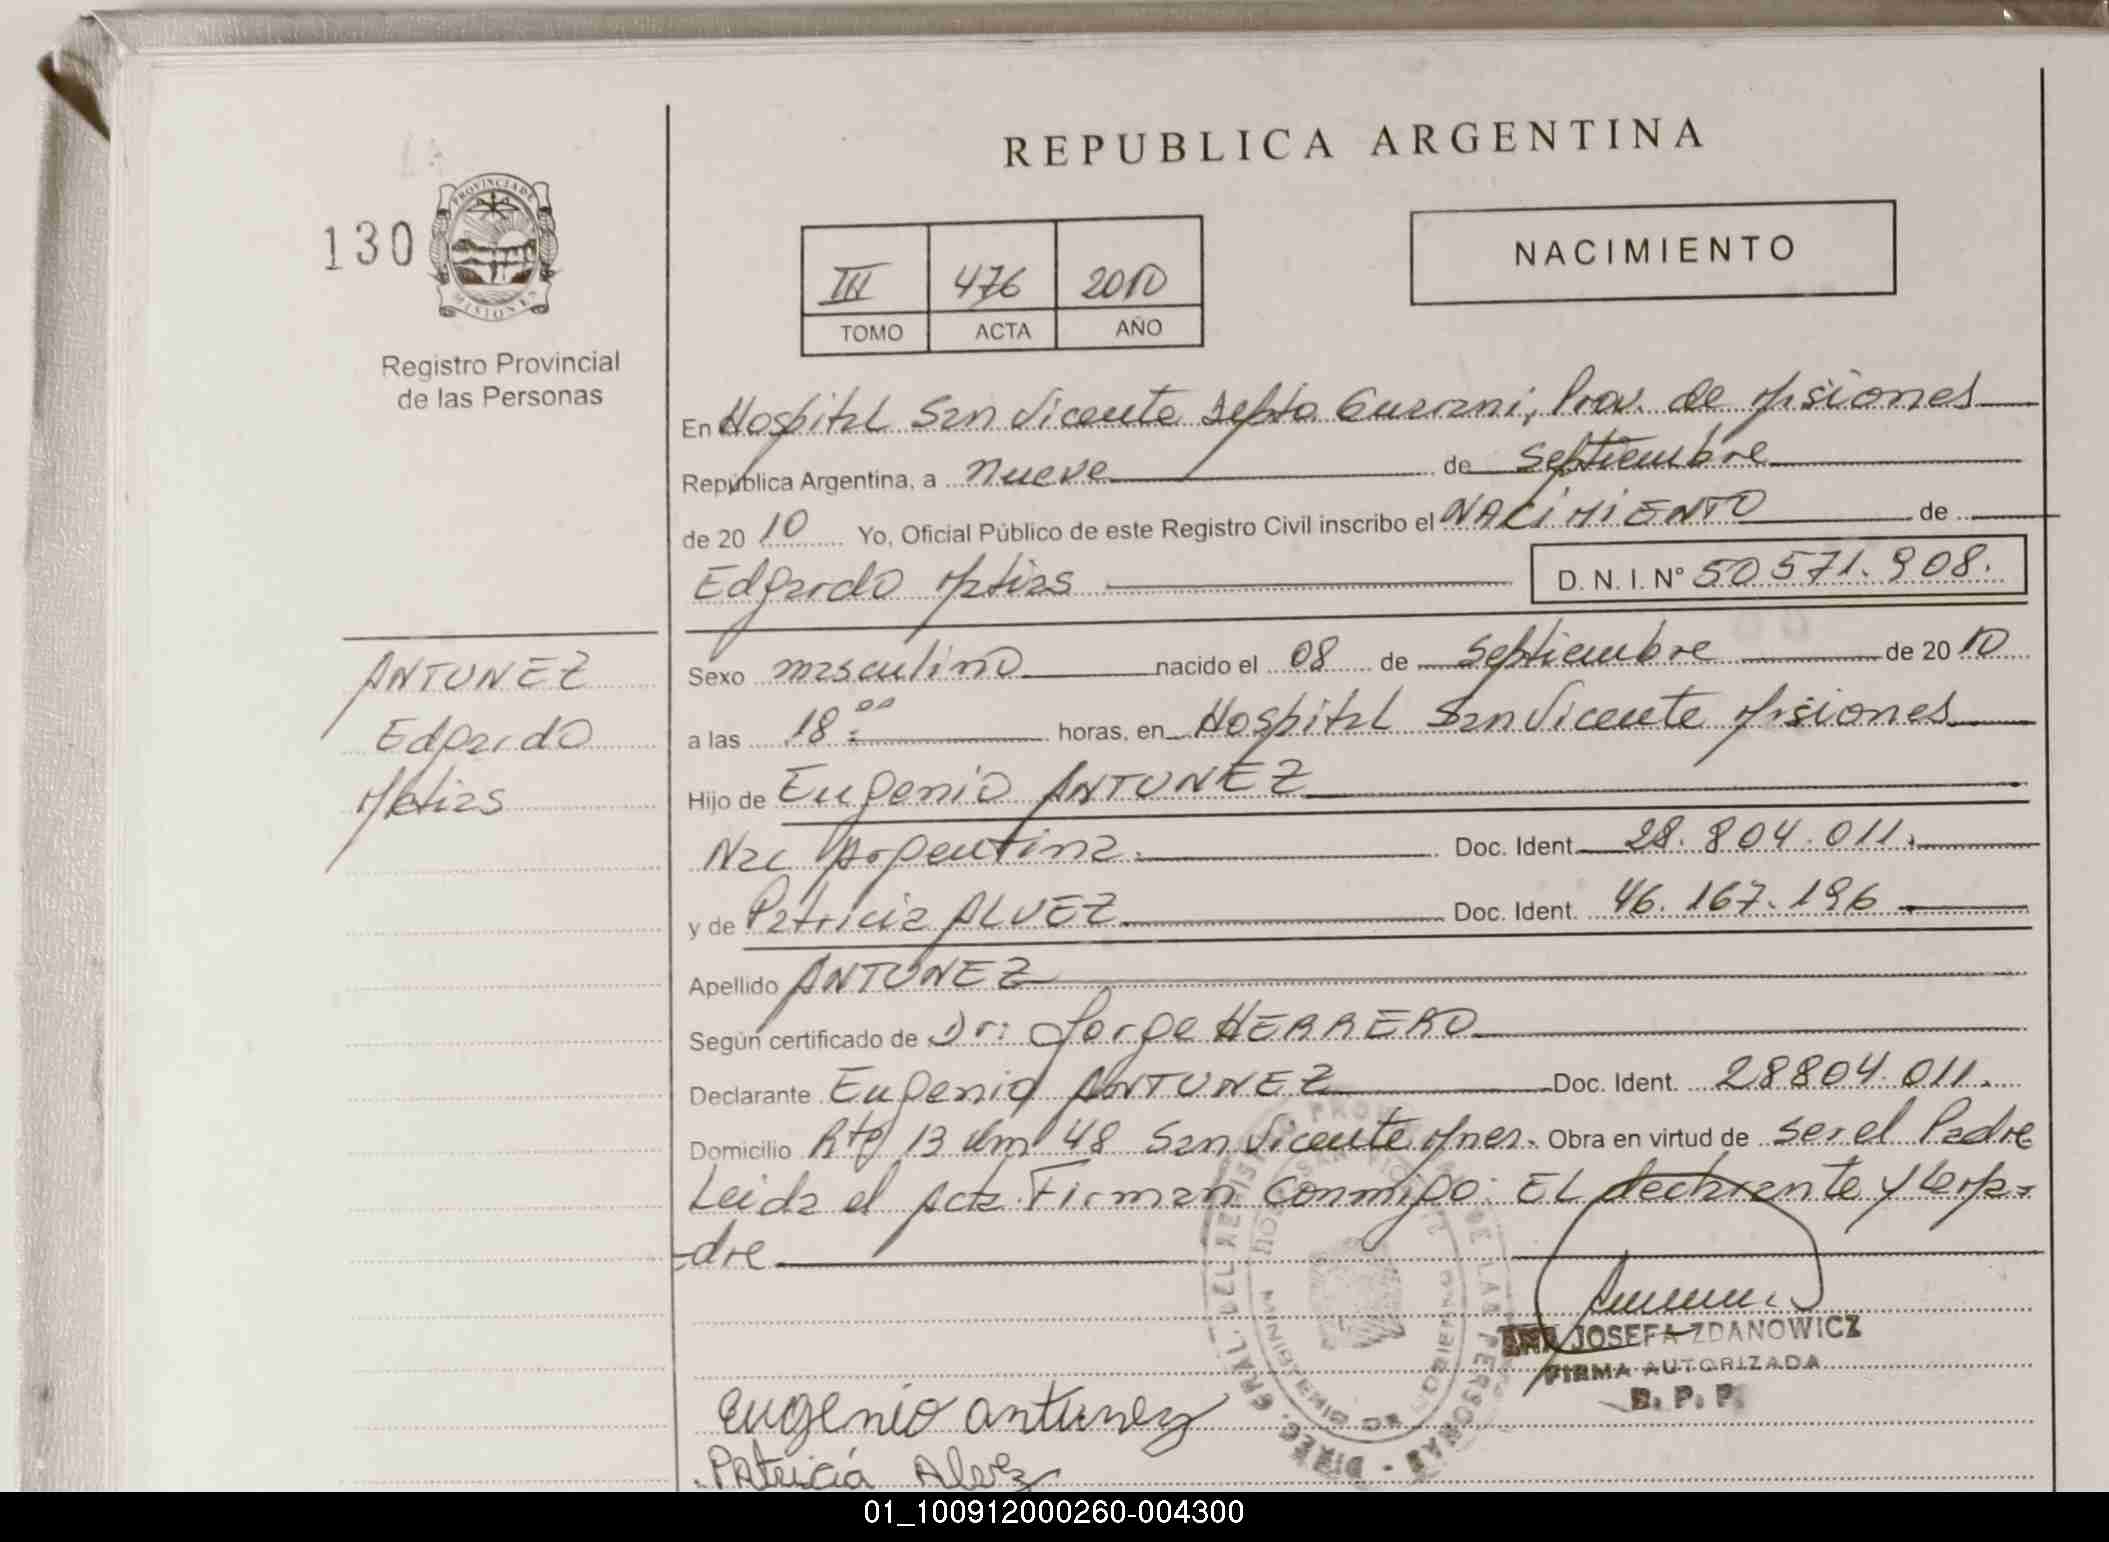 REPUBLICA ARGENTINA
130
PROVINCIA DE
MISIONES
Registro Provincial
de las Personas
III 476 2010
TOMO ACTA AÑO
NACIMIENTO
En Hospital San Vicente Depto Guarani, Prov. de Misiones
República Argentina, a nueve de Septiembre
de 20 10 Yo, Oficial Público de este Registro Civil inscribo el NACIMIENTO de
Edgardo Matias D. N. I. N° 50571.908.
ANTUNEZ
Edgardo
Matias
Sexo masculino nacido el 08 de Septiembre de 20 10
a las 18:00 horas, en Hospital San Vicente Misiones
Hijo de Eugenio ANTUNEZ
Nac Argentina. Doc. Ident. 28.804.011.
y de Patricia ALVEZ Doc. Ident. 46.167.196
Apellido ANTUNEZ
Según certificado de Dr: Jorge HERRERO
Declarante Eugenio ANTUNEZ Doc. Ident. 28804.011.
Domicilio Rta 13 Km 48 San Vicente Mnes. Obra en virtud de ser el Padre
Leida el Acta Firman Conmigo: EL declarante y la Ma-
-dre
JOSEFA ZDANOWICZ
FIRMA AUTORIZADA
R. P. P.
eugenio antunez
Patricia Alvez
01_100912000260-004300